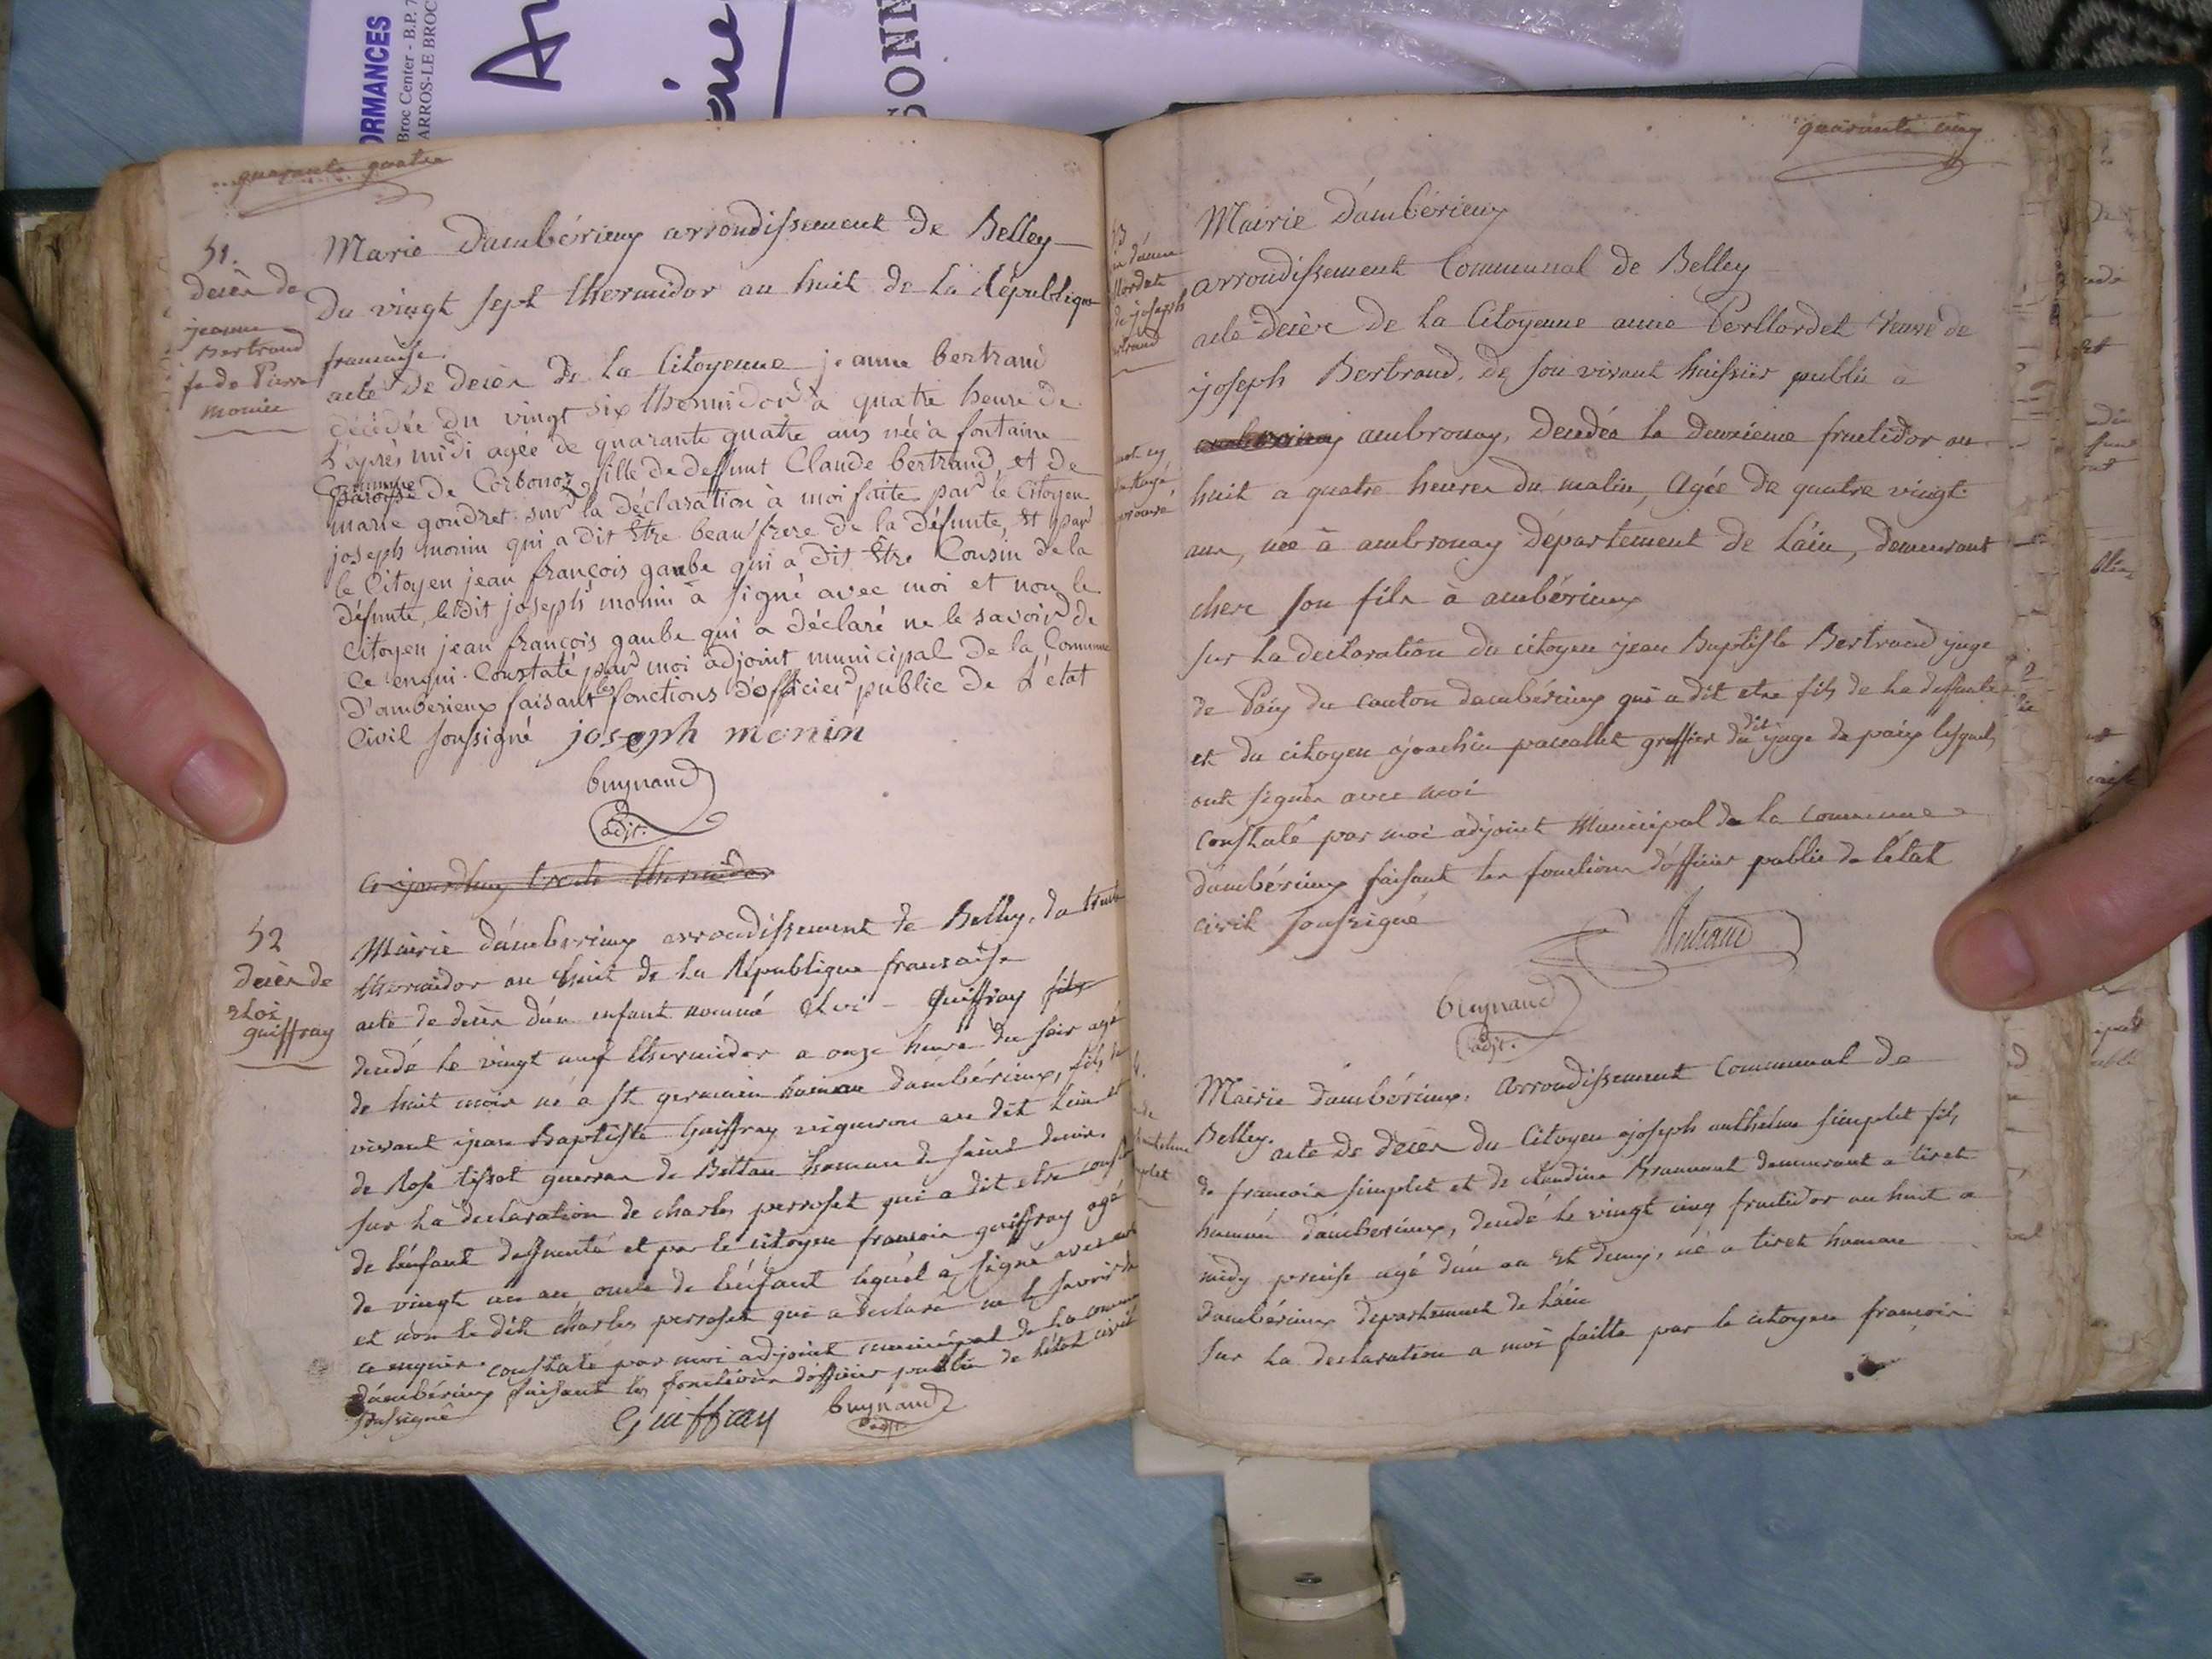 ORMANCES
Broc Center - B.P. 7
ARROS-LE BROC
SONN
quarante quatre
51.
decès de
jeanne
Bertrand
fe de Pierre
monin
Marie d'ambérieux arrondissement de Belley
Du vingt sept thermidor an huit de la République
francaise
acte de decès de la Citoyenne jeanne bertrand
décédée du vingt six thermidor à quatre heure de
l'après midi agée de quarante quatre ans née à fontaine
Commune de Corbonoz, fille de deffunt Claude bertrand, et de
marie goudret. sur la déclaration à moi faite par le Citoyen
joseph monin qui a dit être beaufrere de la défunte, et par
le Citoyen jean françois gaube qui a dit être Cousin de la
défunte, ledit joseph monin à signé avec moi et non le
Citoyen jean françois gaube qui a déclaré ne le savoir de
ce enqui. Constaté par moi adjoint municipal de la Commune
d'ambérieux faisant les fonctions d'officier public de l'état
Civil soussigné joseph monin
buynand
adjt.
Ce jourdhuy trente thermidor
52
decès de
eloi
guiffray
Mairie d'ambérieux arrondissement de Belley, du trente
thermidor an huit de la République francaise
acte de decès d'un enfant nommé eloi - Guiffray fils
decedé le vingt neuf thermidor a onze heure du soir agé
de huit mois né à st germain hameau d'ambérieux, fils de
vivant jean Baptiste Guiffray vigneron au dit lieu et
de Rose tissot de Bettan hameau de saint denis.
sur la declaration de charles perroset qui a dit etre cousin
de l'enfant deffunté et par le citoyen francois guiffray agé
de vingt un an oncle de l'enfant lequel a signé avec moi
et non le dit charles perroset qui a declaré ne le savoir de
ce enquis. constaté par moi adjoint municipal de la commune
d'ambérieux faisant les fonctions d'officier public de l'état civil
soussigné
Guiffray buynand
adjt.
quarante cinq
Mairie d'ambérieux
arrondissement Communal de Belley
acte decès de la Citoyenne anne Perllordet veuve de
joseph Bertrand, de son vivant huissier public a
ambronay, decedée le deuxieme fructidor an
huit a quatre heures du matin, agée de quatre vingt
ans, née à ambronay département de l'ain, demeurant
chez son fils à ambérieux
sur la declaration du citoyen jean Baptiste Bertrand juge
de Paix du canton d'ambérieux qui a dit etre fils de la deffunte
et du citoyen joachin greffier du dit juge de paix lesquels
ont signés avec moi
constaté par moi adjoint Municipal de la commune
d'ambérieux faisant les fonctions d'officier public de l'état
civil soussigné
Bertrand
buynand
adjt.
Mairie d'ambérieux, arrondissement Communal de
Belley. acte de decès du Citoyen joseph anthelme simplet fils
de francois simplet et de claudine demeurant a tiret
hameau d'ambérieux, decedé le vingt cinq fructidor an huit a
midy precise agé d'un an et demy, né a tiret hameau
d'ambérieux departement de l'ain
sur la declaration a moi faitte par le citoyen françois